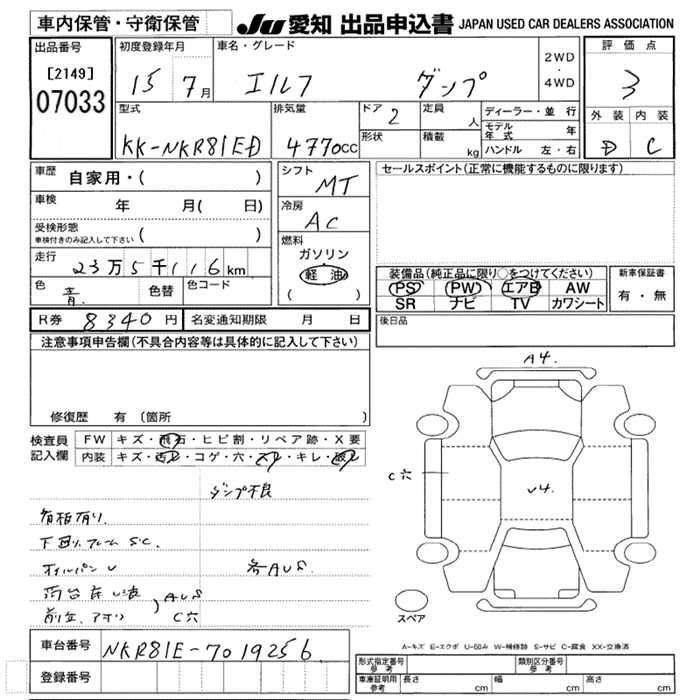 車内保管・守衛保管 JU 愛知 出品申込書 JAPAN USED CAR DEALERS ASSOCIATION
出品番号 初度登録年月 車名・グレード 2WD・4WD 評価点
[2149] 07033 15 7月 エルフ ダンプ 3
型式 排気量 ドア 2 定員 人 ディーラー・並行 外装 内装
KK-NKR81ED 4770cc 形状 積載 kg モデル年式 年 D C
ハンドル 左・右
車歴 自家用・( ) シフト MT セールスポイント(正常に機能するものに限ります)
車検 年 月( 日) 冷房 AC
受検形態 ( )
車検付きのみ記入して下さい
燃料 ガソリン 軽油 ( )
走行 23万5千116km
色 青 色替 色コード
装備品(純正品に限り○をつけてください) 新車保証書
PS PW エアB AW 有・無
SR ナビ TV カワシート
R券 8340円 名変通知期限 月 日 後日品
注意事項申告欄(不具合内容等は具体的に記入して下さい)
修復歴 有 (箇所
A4.
C穴
v4.
検査員記入欄 FW キズ・飛石・ヒビ割・リペア跡・X要
内装 キズ・汚レ・コゲ・穴・スレ・キレ・破レ
ダンプ不良
看板有り.
下回り.フレームSC.
オイルパンV 各AUS.
荷台
AUS
C穴
スペア
A-キズ E-エクボ U-凹み W-補修跡 S-サビ C-腐食 XX-交換済
車台番号 NKR81E-7019256
登録番号
形式指定番号 参考 類別区分番号 参考
車庫証明用 参考 長さ cm 幅 cm 高さ cm